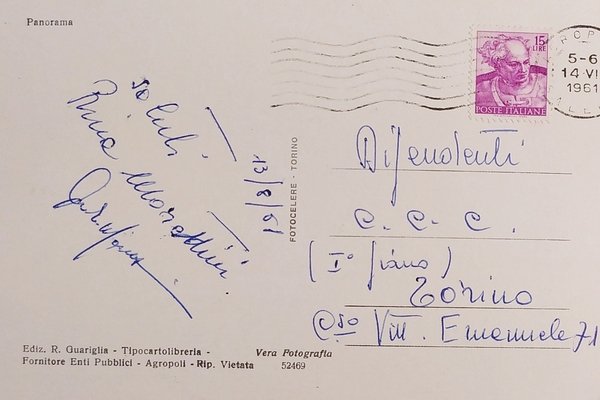 Panorama
15
LIRE
POSTE ITALIANE
5-6
14 VI
1961
Saluti
Rina Morettini
13/8/61
FOTOCELERE - TORINO
Dipendenti
C. C. C.
(I° piano)
Torino
C.so Vitt. Emanuele 71
Ediz. R. Guariglia - Tipocartolibreria - Vera Fotografia
Fornitore Enti Pubblici - Agropoli - Rip. Vietata 52469